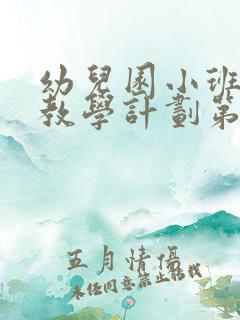 幼兒園小班
教學計劃第
五月情優
未經同意禁止轉載